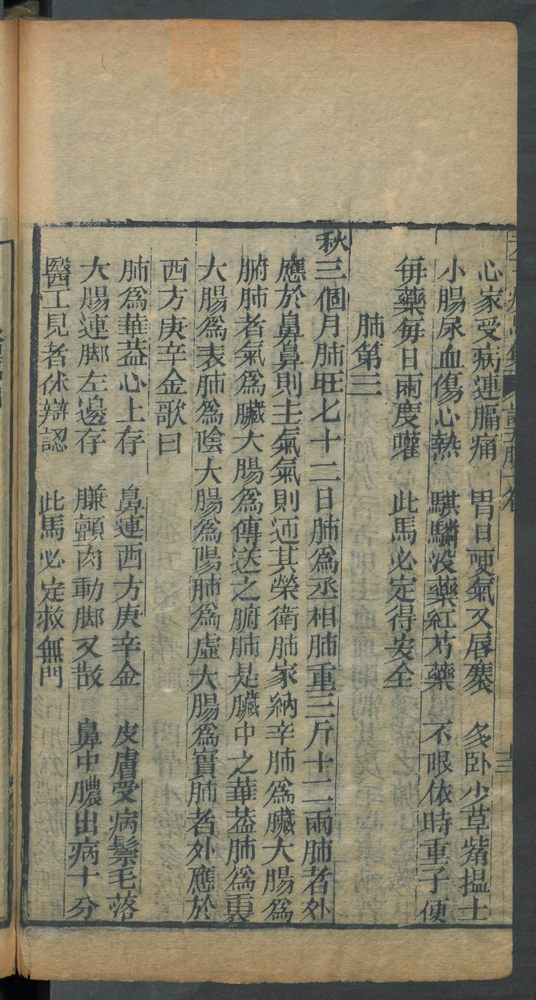 心家受病連膈痛　胃日哽氣又唇褰　多卧少草觜揾土
小腸尿血傷心熱　騏驎没藥紅芍藥　不限依時重子便
每藥每日兩度嚾　此馬必定得安全
肺第三
秋三個月肺旺七十二日肺爲丞相肺重三斤十二兩肺者外
應於鼻鼻則主氣氣則通其榮衛肺家納辛肺爲臟大腸爲
腑肺者氣爲臟大腸爲傳送之腑肺是臟中之華葢肺爲裏
大腸爲表肺爲隂大腸爲陽肺爲虛大腸爲實肺者外應於
西方庚辛金歌曰
肺爲華葢心上存　鼻連西方庚辛金　皮膚受病鬃毛落
大腸連脚左邊存　膁顫肉動脚又散　鼻中膿出病十分
醫工見者休辯認　此馬必定救無門